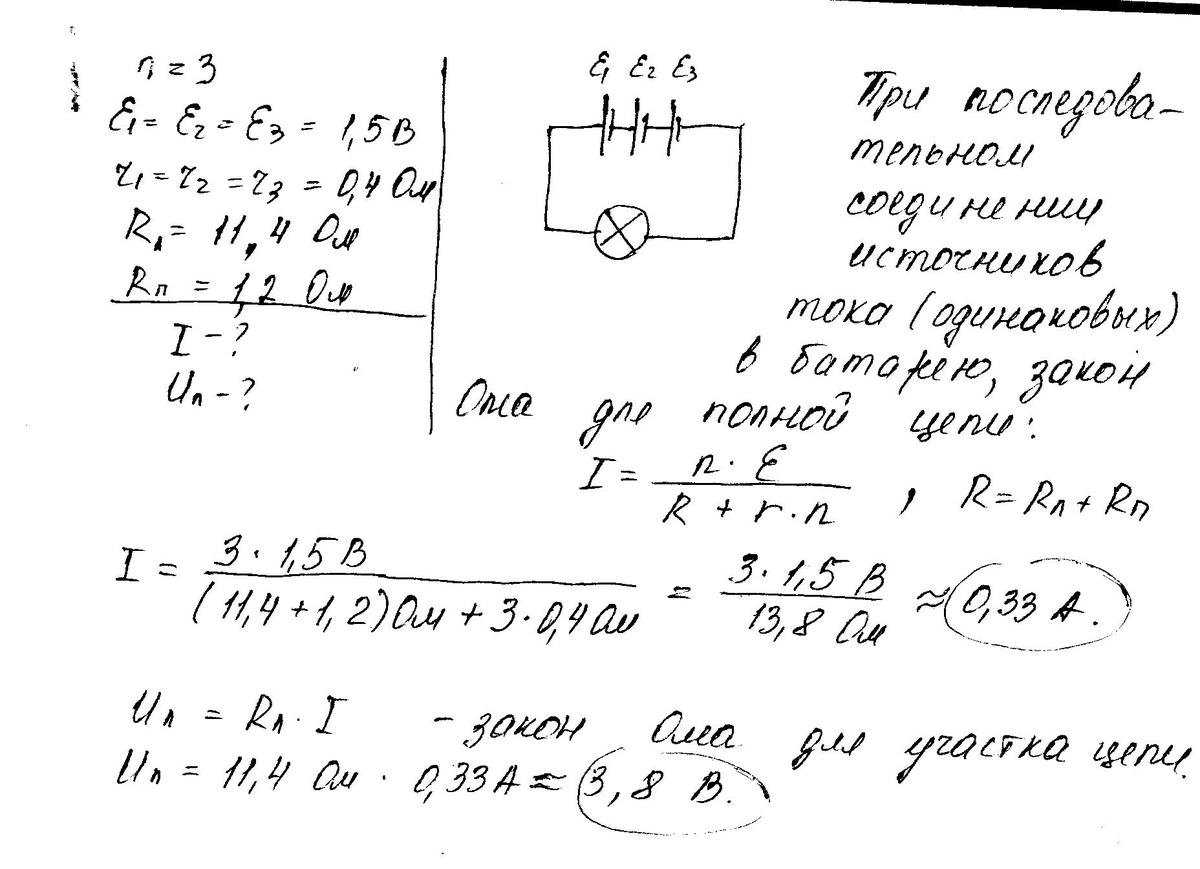 n = 3
ℰ1 = ℰ2 = ℰ3 = 1,5 В
r1 = r2 = r3 = 0,4 Ом
Rл = 11,4 Ом
Rп = 1,2 Ом
I - ?
Uл - ?
ℰ1 ℰ2 ℰ3
При последова-
тельном
соединении
источников
тока (одинаковых)
в батарею, закон
Ома для полной цепи:
I = n · ℰ / R + r · n , R = Rл + Rп
I = 3 · 1,5 В / (11,4 + 1,2) Ом + 3 · 0,4 Ом = 3 · 1,5 В / 13,8 Ом ≈ 0,33 А.
Uл = Rл · I - закон Ома для участка цепи.
Uл = 11,4 Ом · 0,33 А ≈ 3,8 В.